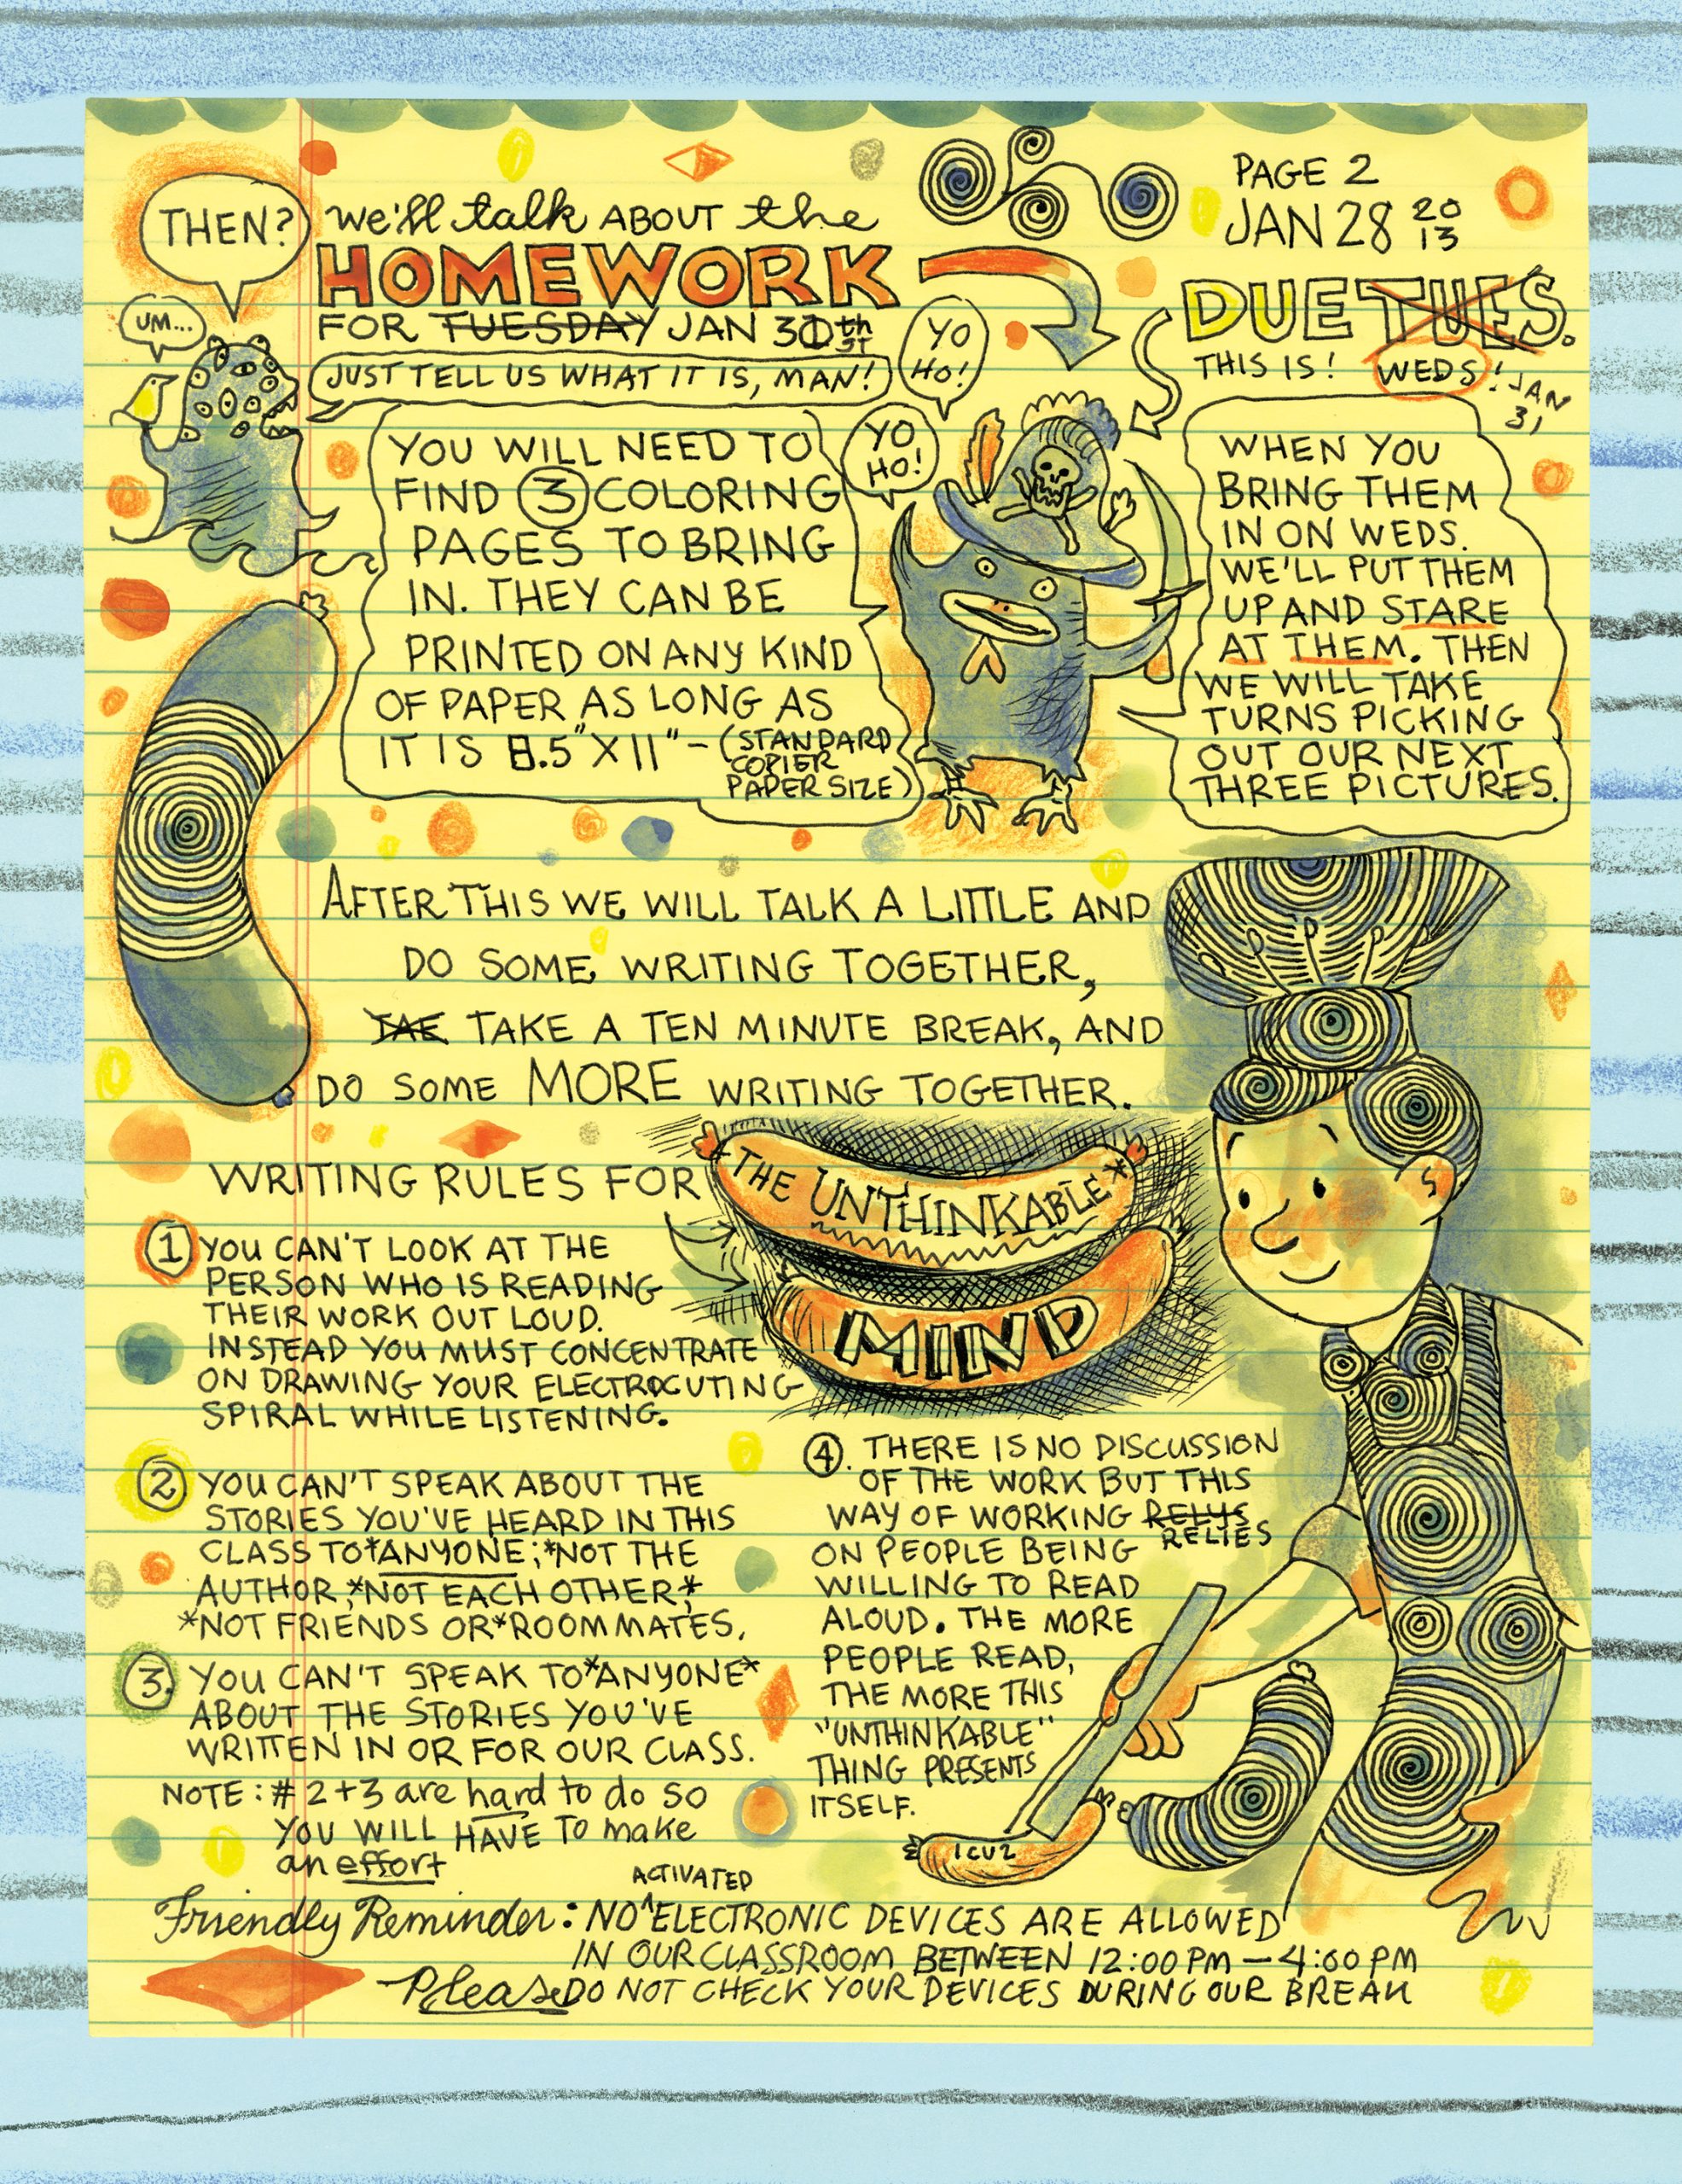 PAGE 2
JAN 28 2013
THEN?
we'll talk ABOUT the
HOMEWORK
FOR TUESDAY JAN 30th ST
DUE TUES.
THIS IS! WEDS! JAN 31
UM...
JUST TELL US WHAT IT IS, MAN!
YO HO!
YO HO!
YOU WILL NEED TO
FIND 3 COLORING
PAGES TO BRING
IN. THEY CAN BE
PRINTED ON ANY KIND
OF PAPER AS LONG AS
IT IS 8.5" X 11" - (STANDARD
COPIER
PAPER SIZE)
WHEN YOU
BRING THEM
IN ON WEDS.
WE'LL PUT THEM
UP AND STARE
AT THEM. THEN
WE WILL TAKE
TURNS PICKING
OUT OUR NEXT
THREE PICTURES.
AFTER THIS WE WILL TALK A LITTLE AND
DO SOME WRITING TOGETHER,
TAE TAKE A TEN MINUTE BREAK, AND
DO SOME MORE WRITING TOGETHER.
WRITING RULES FOR
THE UNTHINKABLE*
MIND
1 YOU CAN'T LOOK AT THE
PERSON WHO IS READING
THEIR WORK OUT LOUD.
INSTEAD YOU MUST CONCENTRATE
ON DRAWING YOUR ELECTROCUTING
SPIRAL WHILE LISTENING.
2 YOU CAN'T SPEAK ABOUT THE
STORIES YOU'VE HEARD IN THIS
CLASS TO *ANYONE; *NOT THE
AUTHOR, *NOT EACH OTHER,*
*NOT FRIENDS OR *ROOMMATES.
3. YOU CAN'T SPEAK TO *ANYONE*
ABOUT THE STORIES YOU'VE
WRITTEN IN OR FOR OUR CLASS.
NOTE: # 2+3 are hard to do so
YOU WILL HAVE TO make
an effort
4. THERE IS NO DISCUSSION
OF THE WORK BUT THIS
WAY OF WORKING RELYS
RELIES
ON PEOPLE BEING
WILLING TO READ
ALOUD. THE MORE
PEOPLE READ,
THE MORE THIS
"UNTHINKABLE"
THING PRESENTS
ITSELF.
I CU2
ACTIVATED
Friendly Reminder: NO ^ELECTRONIC DEVICES ARE ALLOWED
IN OUR CLASSROOM BETWEEN 12:00 PM - 4:00 PM
Please DO NOT CHECK YOUR DEVICES DURING OUR BREAK